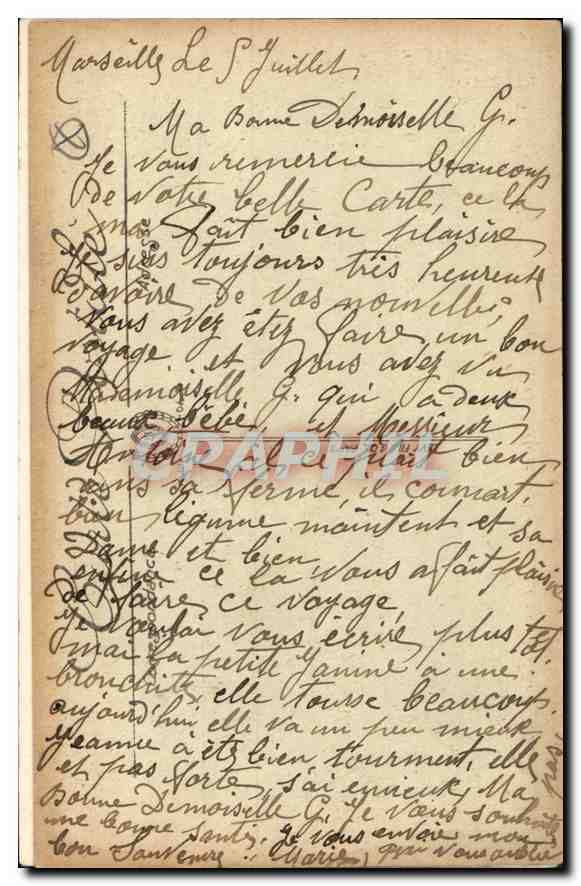 Marseille Le 5 Juillet
Ma Bonne Demoiselle G.
Je vous remercie beaucoup
De votre belle Carte, ce la
ma fait bien plaisire
Je suis toujours très heureuse
D'avoire De vos nouvelle,
Vous avez étez faire un bon
voyage et vous avez vu
Mademoiselle G. qui a deux
beaux bébé, et Messieur
Antoin il ce plait bien
dans sa ferme, il connait
bien ligume maintent et sa
Dame et bien
enfin ce la vous a fait plaisire
de faire ce voyage,
Je voulai vous écrire plus tot
mai la petite Jeanne à une
bronchite, elle tousse beaucoup
aujourd'hui elle va un peu mieux
Jeanne à étz bien tourment, elle
et pas forte, Ma
pas
Bonne Demoiselle G. Je vous souhaite
une bonne santé, Je vous envoie mon
bon Souvenire Marie, qui vous oublie
CPAPHIL